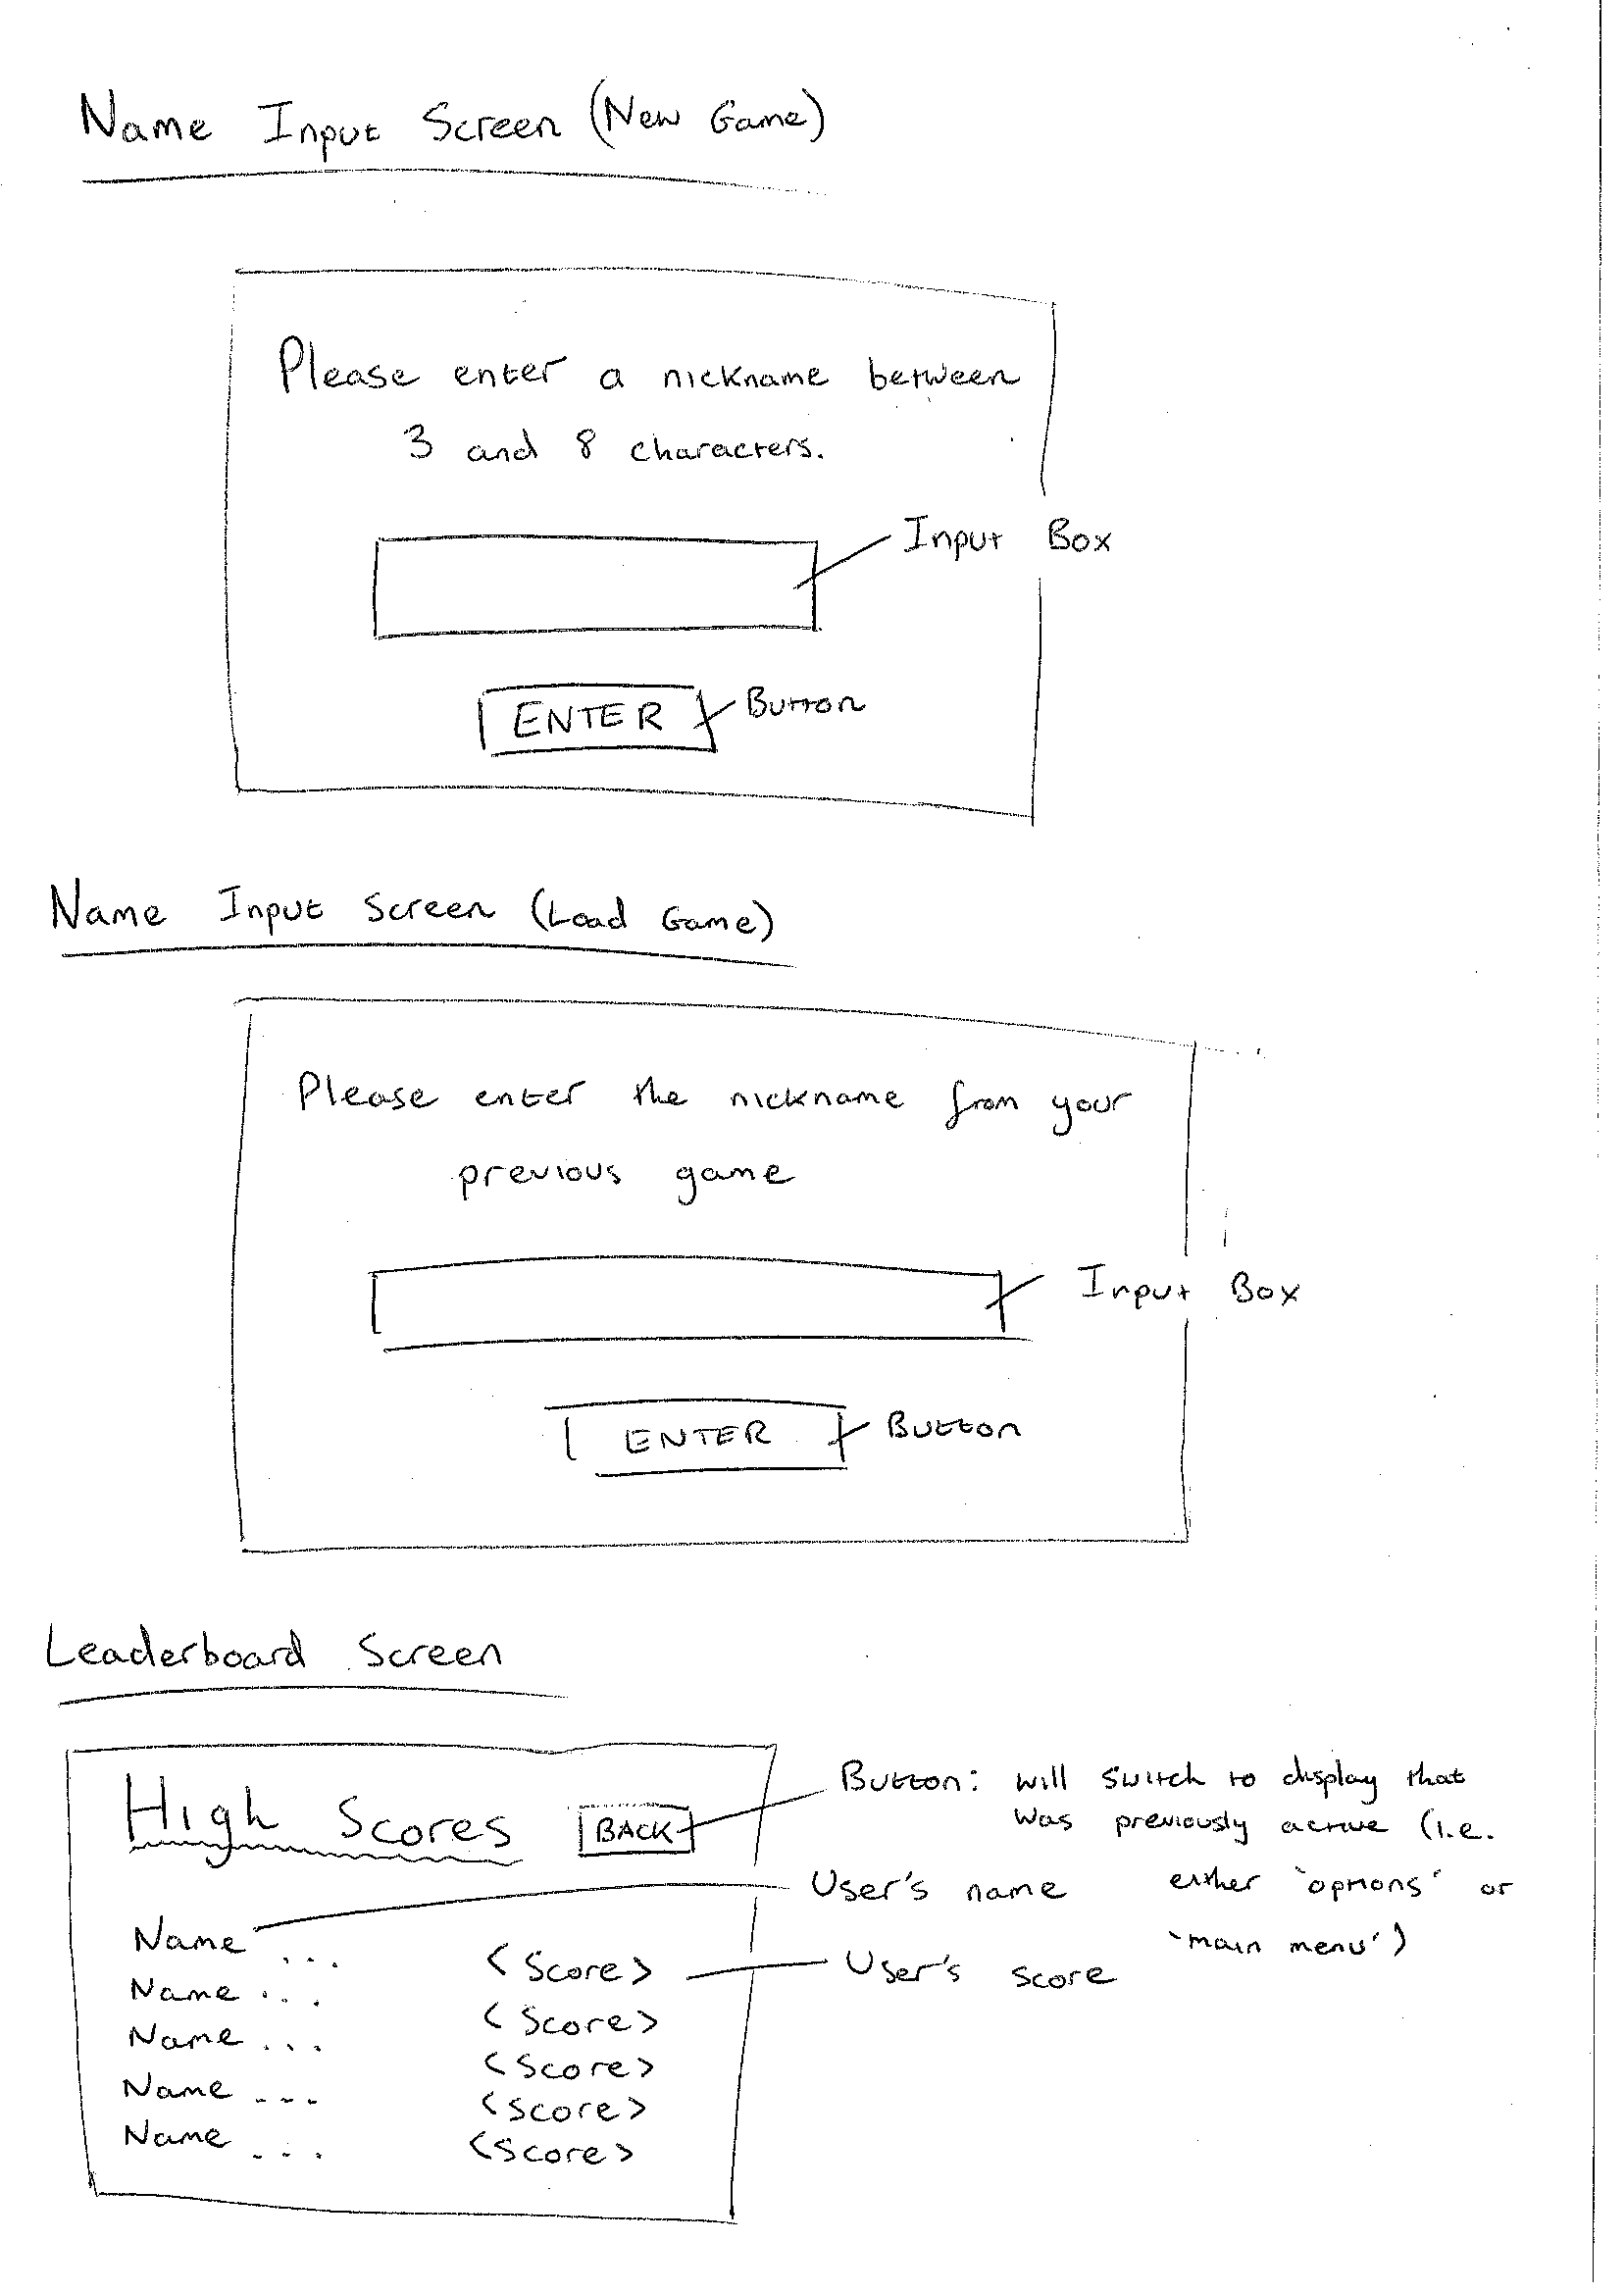 Name Input Screen (New Game)
Please enter a nickname between
3 and 8 characters.
Input Box
ENTER
Button
Name Input Screen (Load Game)
Please enter the nickname from your
previous game
Input Box
ENTER
Button
Leaderboard Screen
High Scores
BACK
Button: will switch to display that
was previously active (i.e.
either 'options' or
'main menu')
User's name
Name ...
<Score>
User's score
Name ...
<Score>
Name ...
<Score>
Name ---
<Score>
Name ...
<Score>